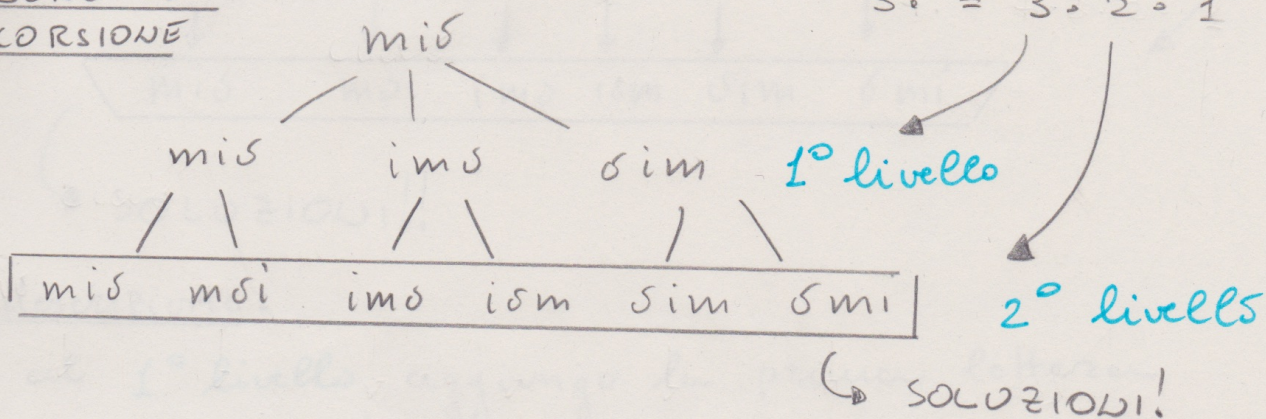 CORSIONE
3! = 3 · 2 · 1
mio
mio imo oim 1° livello
mio moi imo iom oim omi 2° livello
SOLUZIONI!